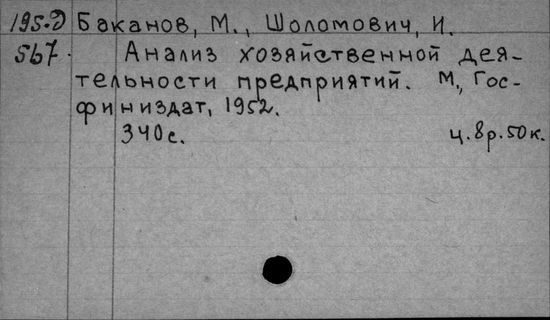 195-Д Баканов, М., Шоломович, И.
567. Анализ хозяйственной дея-
тельности предприятий. М., Гос-
финиздат, 1952.
340с. ц.8р.50к.